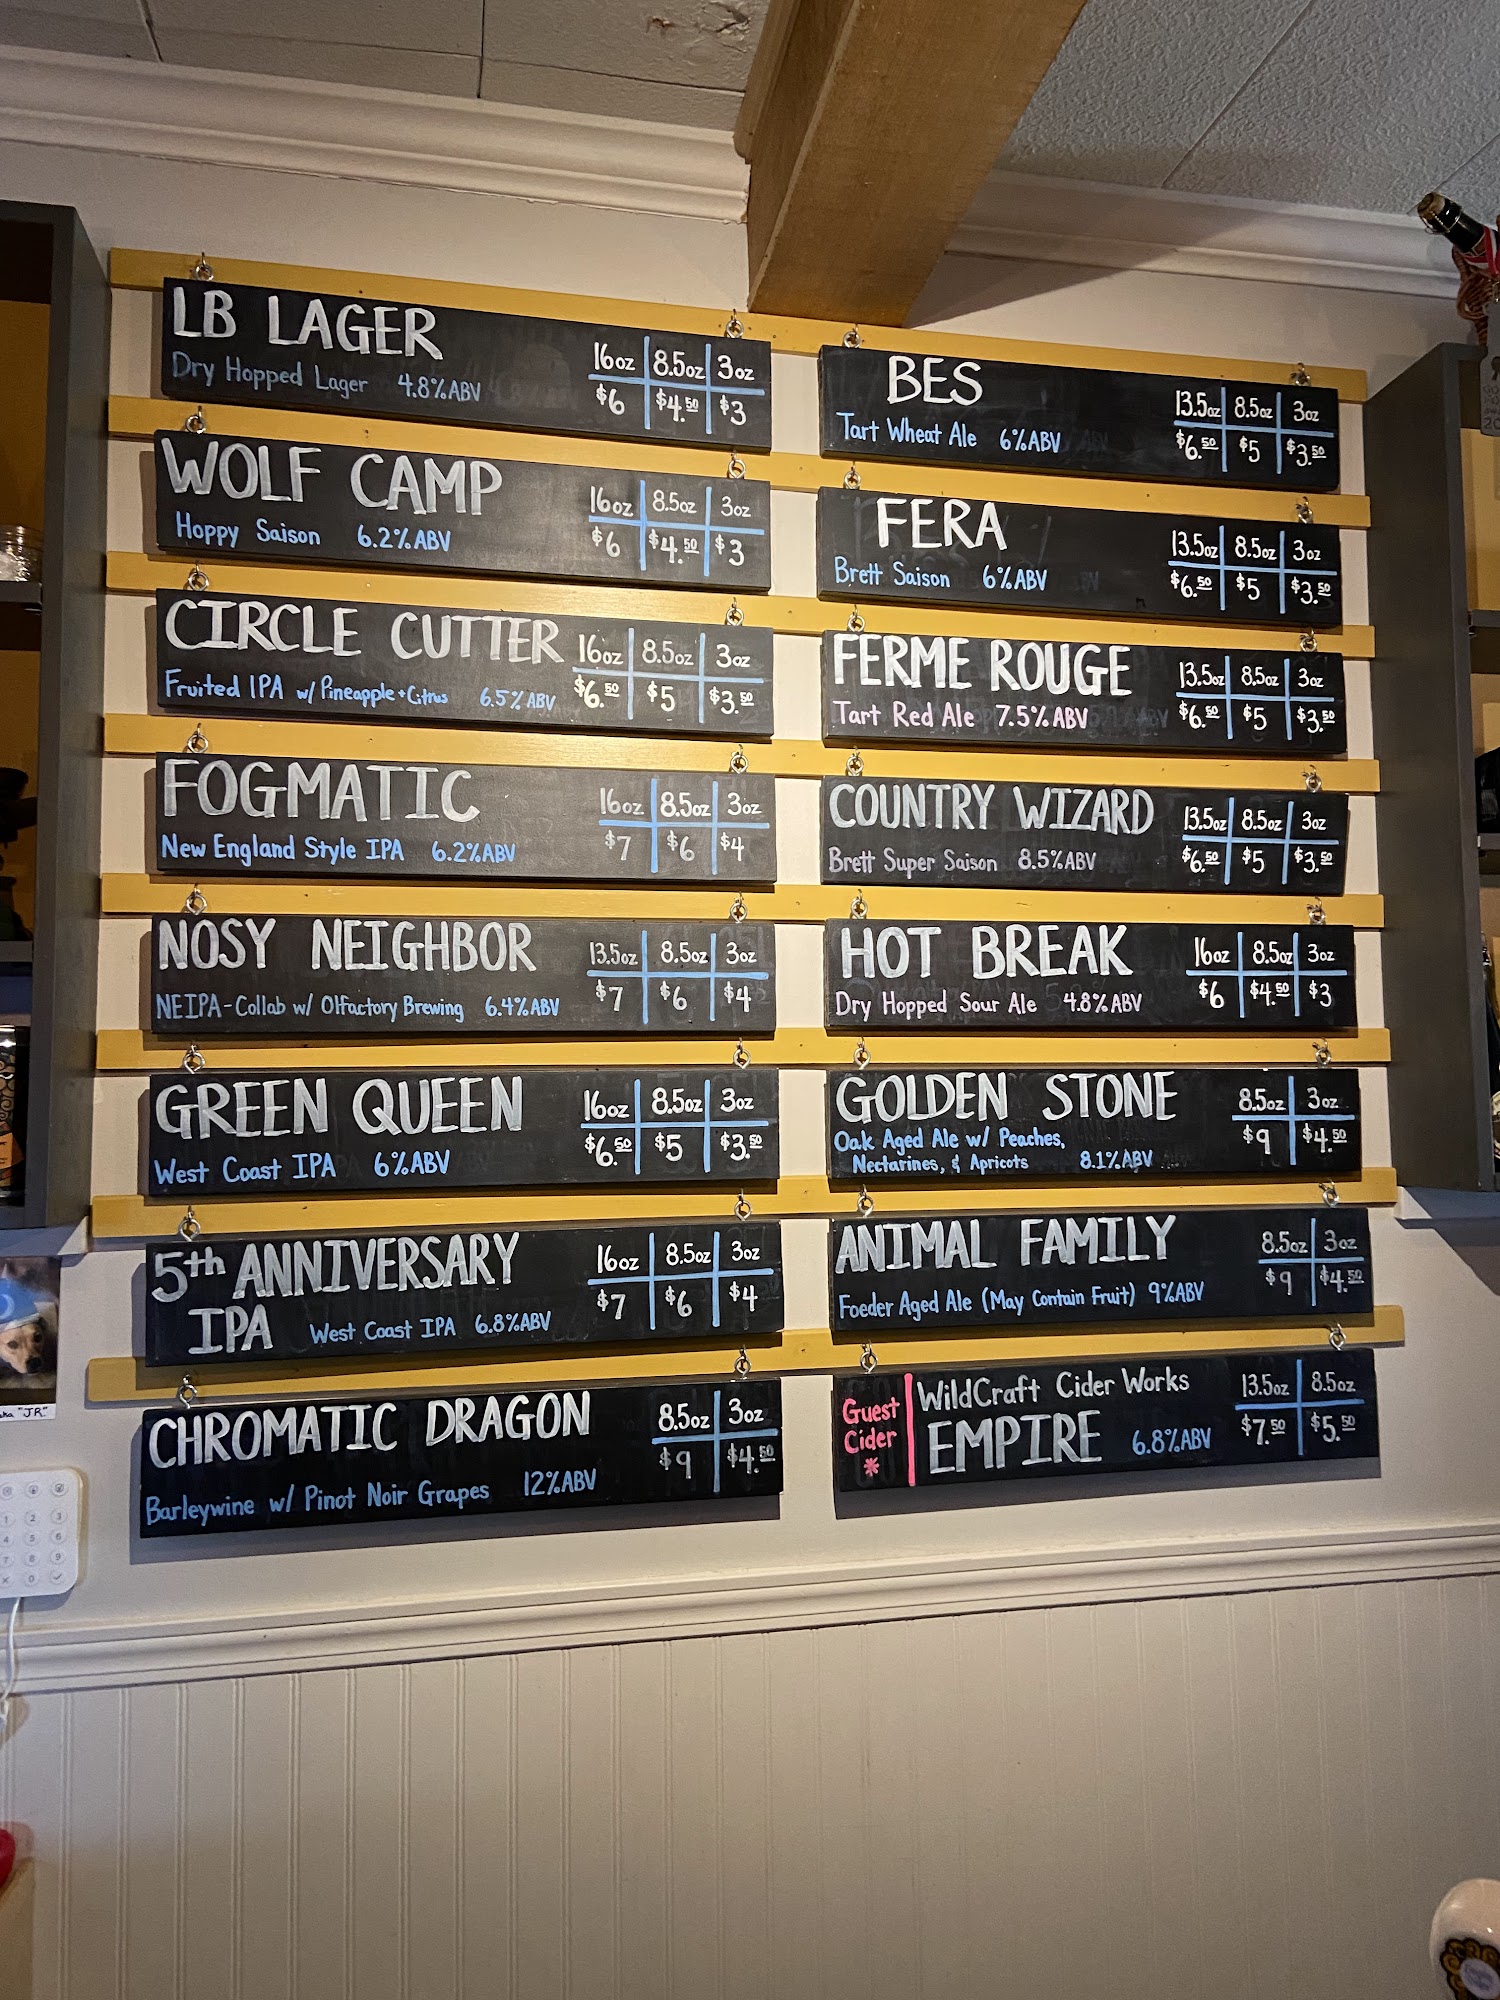 LB LAGER
Dry Hopped Lager 4.8% ABV
16oz 8.5oz 3oz
$6 $4.50 $3
WOLF CAMP
Hoppy Saison 6.2% ABV
16oz 8.5oz 3oz
$6 $4.50 $3
CIRCLE CUTTER
Fruited IPA w/ Pineapple + Citrus 6.5% ABV
16oz 8.5oz 3oz
$6.50 $5 $3.50
FOGMATIC
New England Style IPA 6.2% ABV
16oz 8.5oz 3oz
$7 $6 $4
NOSY NEIGHBOR
NEIPA-Collab w/ Olfactory Brewing 6.4% ABV
13.5oz 8.5oz 3oz
$7 $6 $4
GREEN QUEEN
West Coast IPA 6% ABV
16oz 8.5oz 3oz
$6.50 $5 $3.50
5th ANNIVERSARY
IPA West Coast IPA 6.8% ABV
16oz 8.5oz 3oz
$7 $6 $4
CHROMATIC DRAGON
Barleywine w/ Pinot Noir Grapes 12% ABV
8.5oz 3oz
$9 $4.50
BES
Tart Wheat Ale 6% ABV
13.5oz 8.5oz 3oz
$6.50 $5 $3.50
FERA
Brett Saison 6% ABV
13.5oz 8.5oz 3oz
$6.50 $5 $3.50
FERME ROUGE
Tart Red Ale 7.5% ABV
13.5oz 8.5oz 3oz
$6.50 $5 $3.50
COUNTRY WIZARD
Brett Super Saison 8.5% ABV
13.5oz 8.5oz 3oz
$6.50 $5 $3.50
HOT BREAK
Dry Hopped Sour Ale 4.8% ABV
16oz 8.5oz 3oz
$6 $4.50 $3
GOLDEN STONE
Oak Aged Ale w/ Peaches,
Nectarines, & Apricots 8.1% ABV
8.5oz 3oz
$9 $4.50
ANIMAL FAMILY
Foeder Aged Ale (May Contain Fruit) 9% ABV
8.5oz 3oz
$9 $4.50
Guest
Cider
*
WildCraft Cider Works
EMPIRE 6.8% ABV
13.5oz 8.5oz
$7.50 $5.50
aka "JR."
1 2 3
4 5 6
7 8 9
× 0 ✓